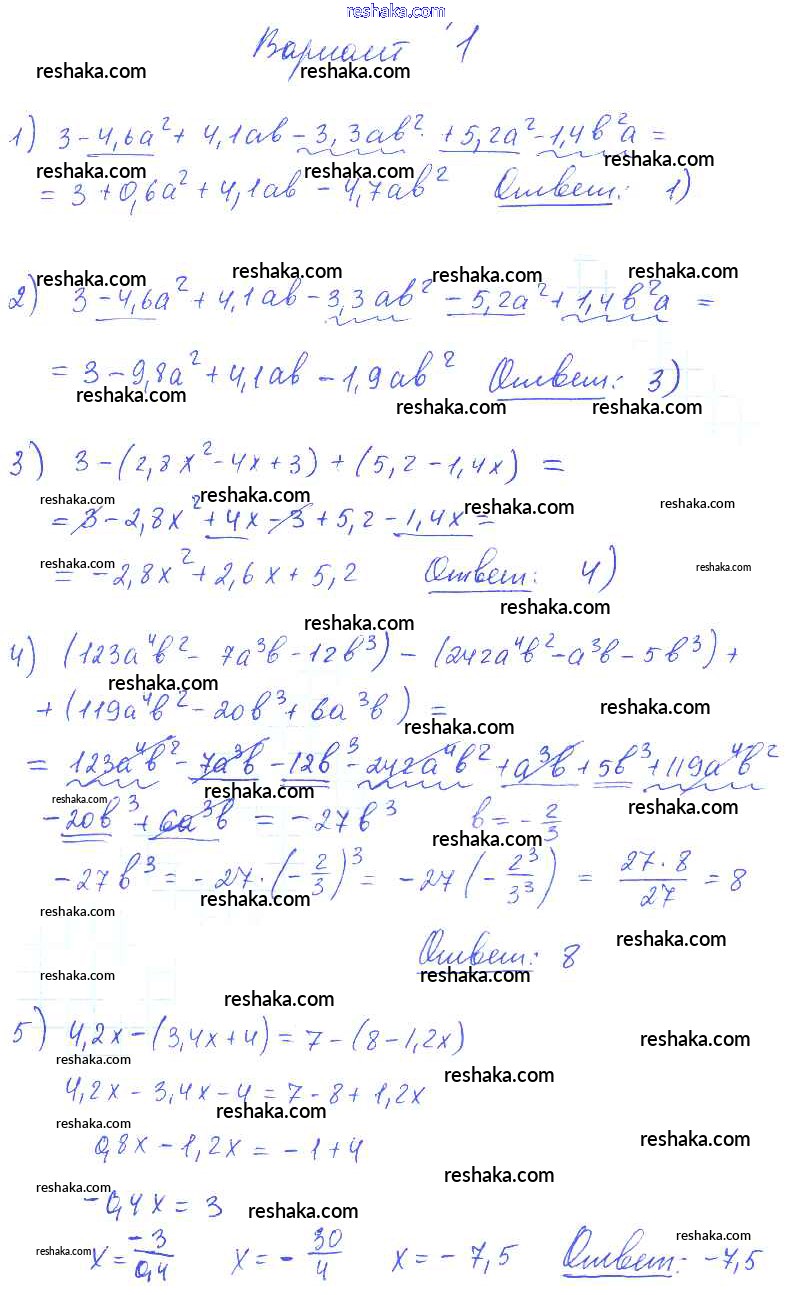 reshaka.com
Вариант 1
reshaka.com reshaka.com
1) 3 - 4,6a² + 4,1ab - 3,3ab² + 5,2a² - 1,4b²a =
reshaka.com reshaka.com reshaka.com
= 3 + 0,6a² + 4,1ab - 4,7ab² Ответ: 1)
reshaka.com reshaka.com reshaka.com reshaka.com
2) 3 - 4,6a² + 4,1ab - 3,3ab² - 5,2a² + 1,4b²a =
= 3 - 9,8a² + 4,1ab - 1,9ab² Ответ: 3)
reshaka.com reshaka.com reshaka.com
3) 3 - (2,8x² - 4x + 3) + (5,2 - 1,4x) =
reshaka.com reshaka.com reshaka.com reshaka.com
= 3 - 2,8x² + 4x - 3 + 5,2 - 1,4x =
reshaka.com reshaka.com
= -2,8x² + 2,6x + 5,2 Ответ: 4)
reshaka.com reshaka.com
4) (123a⁴b² - 7a³b - 12b³) - (242a⁴b² - a³b - 5b³) +
reshaka.com reshaka.com
+ (119a⁴b² - 20b³ + 6a³b) =
reshaka.com reshaka.com
= 123a⁴b² - 7a³b - 12b³ - 242a⁴b² + a³b + 5b³ + 119a⁴b²
reshaka.com reshaka.com reshaka.com
- 20b³ + 6a³b = -27b³ b = -2/3
reshaka.com
-27b³ = -27·(-2/3)³ = -27(-2³/3³) = 27·8/27 = 8
reshaka.com reshaka.com
Ответ: 8
reshaka.com
reshaka.com reshaka.com
reshaka.com
5) 4,2x - (3,4x + 4) = 7 - (8 - 1,2x)
reshaka.com
reshaka.com reshaka.com
4,2x - 3,4x - 4 = 7 - 8 + 1,2x
reshaka.com
reshaka.com
0,8x - 1,2x = -1 + 4
reshaka.com
reshaka.com
reshaka.com
-0,4x = 3
reshaka.com
x = -3/0,4 x = -30/4 x = -7,5 Ответ: -7,5
reshaka.com reshaka.com